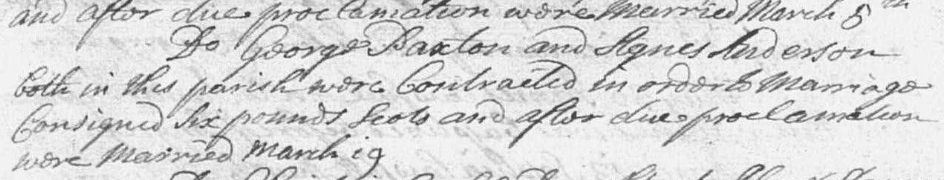 and after due proclamation were Married March 5th
Do George Paxton and Agnes Anderson
both in this parish were Contracted in order to Marriage
Consigned Six pounds Scots and after due proclamation
were Married March 19